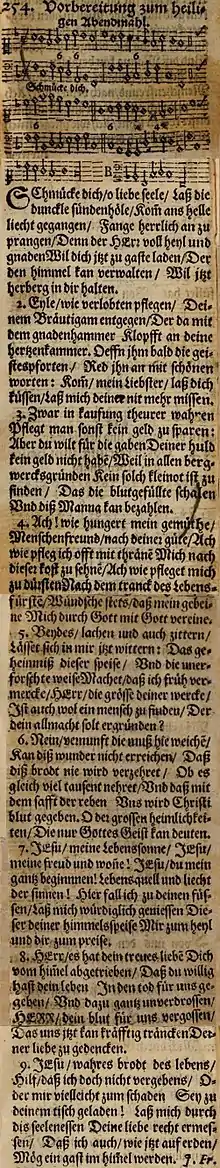 254. Vorbereitung zum heili-
gen Abendmahl.
Schmücke dich,
SChmücke dich/o liebe seele/ Laß die
dunckle sündenhöle/ Kom̃ ans helle
liecht gegangen/ Fange herrlich an zu
prangen/Denn der HErr voll heyl und
gnaden Wil dich jtzt zu gaste laden/Der
den himmel kan verwalten/ Wil jtzt
herberg in dir halten.
2. Eyle/wie verlobten pflegen/ Dei-
nem Bräutigam entgegen/Der da mit
dem gnadenhammer Klopfft an deine
hertzenkammer. Oeffn jhm bald die gei-
stespforten/ Red jhn an mit schönen
worten: Kom̃/ mein Liebster/ laß dich
küssen/Laß mich deiner nit mehr missen.
3. Zwar in kaufung theurer wahren
Pflegt man sonst kein geld zu sparen:
Aber du wilt für die gaben Deiner huld
kein geld nicht habẽ/ Weil in allen berg-
wercksgründen Kein solch kleinot ist zu
finden/ Das die blutgefüllte schalen
Vnd diß Manna kan bezahlen.
4. Ach! wie hungert mein gemüthe/
Menschenfreund/nach deiner güte/ Ach
wie pfleg ich offt mit thränẽ Mich nach
dieser kost zu sehnẽ/Ach wie pfleget mich
zu dürsten Nach dem tranck des Lebens-
fürstẽ/Wündsche stets/daß mein gebei-
ne Mich durch Gott mit Gott vereine.
5. Beydes/ lachen und auch zittern/
Lässet sich in mir jtzt wittern: Das ge-
heimniß dieser speise/ Vnd die uner-
forschte weise Machet/daß ich früh ver-
mercke/HErr/die grösse deiner wercke/
Ist auch wol ein mensch zu finden/ Der
dein allmacht solt ergründen?
6. Nein/vernunft die muß hie weichẽ/
Kan diß wunder nicht erreichen/ Daß
diß brodt nie wird verzehret/ Ob es
gleich viel tausent nehret/Vnd daß mit
dem safft der reben Vns wird Christi
blut gegeben. O der grossen heimlichkei-
ten/ Die nur Gottes Geist kan deuten.
7. JEsu/ meine lebenssonne/ JEsu/
meine freud und woñe! JEsu/du mein
gantz beginnen! Lebensquell und liecht
der sinnen! Hier fall ich zu deinen füs-
sen/Laß mich würdiglich geniessen Die-
ser deiner himmelspeise Mir zum heyl
und dir zum preise.
8. HErr/es hat dein treues liebẽ Dich
vom him̃el abgetrieben/ Daß du willig
hast dein leben In den tod für uns ge-
geben/ Vnd dazu gantz unverdrossen/
HERR/dein blut für uns vergossen/
Das uns jtzt kan kräfftig träncken Dei-
ner liebe zu gedencken.
9. JEsu/ wahres brodt des lebens/
Hilf/daß ich doch nicht vergebens/ O-
der mir vielleicht zum schaden Sey zu
deinem tisch geladen! Laß mich durch
diß seelenessen Deine liebe recht ermes-
sen/ Daß ich auch/ wie jtzt auf erden/
Mög ein gast im him̃el werden. J. Fr.